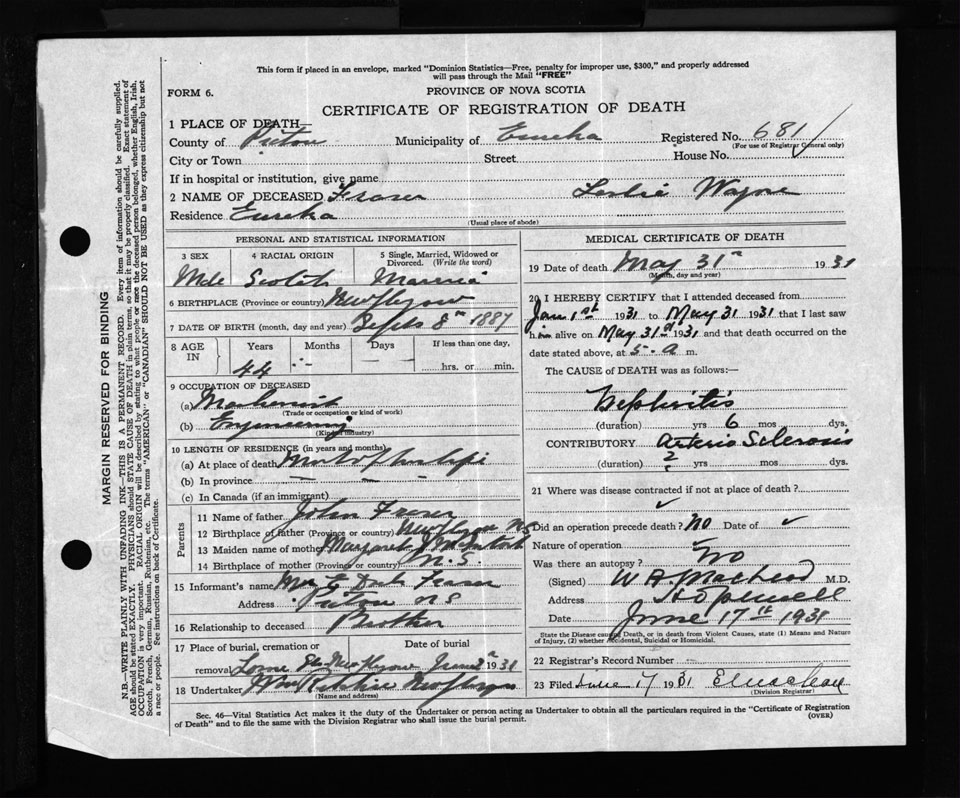 This form if placed in an envelope, marked "Dominion Statistics—Free, penalty for improper use, $300," and properly addressed
will pass through the Mail "FREE"
FORM 6.
PROVINCE OF NOVA SCOTIA
CERTIFICATE OF REGISTRATION OF DEATH
1 PLACE OF DEATH—
County of Pictou Municipality of Eureka Registered No. 681
(For use of Registrar General only)
City or Town Street House No.
If in hospital or institution, give name
2 NAME OF DECEASED Fraser Leslie Wayne
Residence Eureka
(Usual place of abode)
PERSONAL AND STATISTICAL INFORMATION
3 SEX 4 RACIAL ORIGIN 5 Single, Married, Widowed or
Divorced. (Write the word)
Male Scotch Married
6 BIRTHPLACE (Province or country) New Glasgow
7 DATE OF BIRTH (month, day and year) Sept 8th 1887
8 AGE IN Years Months Days If less than one day,
44 hrs. or min.
9 OCCUPATION OF DECEASED
(a) Machinist
(Trade or occupation or kind of work)
(b) Engineering
(Kind of industry)
10 LENGTH OF RESIDENCE (in years and months)
(a) At place of death
(b) In province — — —
(c) In Canada (if an immigrant)
Parents
11 Name of father John Fraser
12 Birthplace of father (Province or country) New Glasgow N.S.
13 Maiden name of mother Margaret McIntosh
14 Birthplace of mother (Province or country) N.S.
15 Informant's name Fraser
Address Pictou N S
16 Relationship to deceased Brother
17 Place of burial, cremation or Date of burial
removal Lorne New Glasgow June 1931
18 Undertaker Ritchie New Glasgow
(Name and address)
MEDICAL CERTIFICATE OF DEATH
19 Date of death May 31st 1931
(Month, day and year)
20 I HEREBY CERTIFY that I attended deceased from
Jan 1st 1931 to May 31 1931 that I last saw
him alive on May 31st 1931 and that death occurred on
date stated above, at 5 a m.
The CAUSE of DEATH was as follows:—
Nephritis
(duration) yrs 6 mos. dys.
CONTRIBUTORY Arterio Sclerosis
(duration) ? yrs mos. dys.
21 Where was disease contracted if not at place of death?
✓
Did an operation precede death? No Date of ✓
Nature of operation ✓
Was there an autopsy? No
(Signed) W A MacLeod M.D.
Address Hopewell
Date June 17th 1931
State the Disease causing Death, or in death from Violent Causes, state (1) Means and Nature
of Injury, (2) whether Accidental, Suicidal or Homicidal.
22 Registrar's Record Number
23 Filed June 17 1931
(Division Registrar)
Sec. 46—Vital Statistics Act makes it the duty of the Undertaker or person acting as Undertaker to obtain all the particulars required in the "Certificate of Registration
of Death" and to file the same with the Division Registrar who shall issue the burial permit.
(OVER)
MARGIN RESERVED FOR BINDING
N.B.—WRITE PLAINLY WITH UNFADING INK—THIS IS A PERMANENT RECORD. Every item of information should be carefully supplied.
AGE should be stated EXACTLY. PHYSICIANS should STATE CAUSE OF DEATH in plain terms, so that it may be properly classified. Exact statement of
OCCUPATION is very important. RACIAL ORIGIN will be described by stating to what people or race the deceased person belonged, whether English, Irish,
Scotch, French, German, Russian, Ruthenian, etc. The terms "AMERICAN" or "CANADIAN" SHOULD NOT BE USED as they express citizenship but not
a race or people. See instructions on back of Certificate.